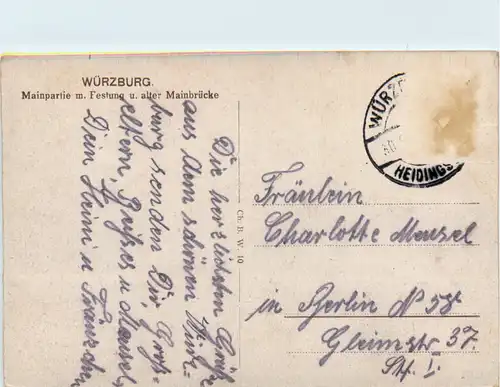 WÜRZBURG.
Mainpartie m. Festung u. alter Mainbrücke
Die herzlichsten Grüße
aus dem schönen Würz-
burg senden Dir Groß-
eltern, Großes u. Mausel,
Dein Heini u.
Ch. B. W. 10
WÜRZ
HEIDINGS
Fräulein
Charlotte Mensel
in Berlin N 58
Gleimstr 37.